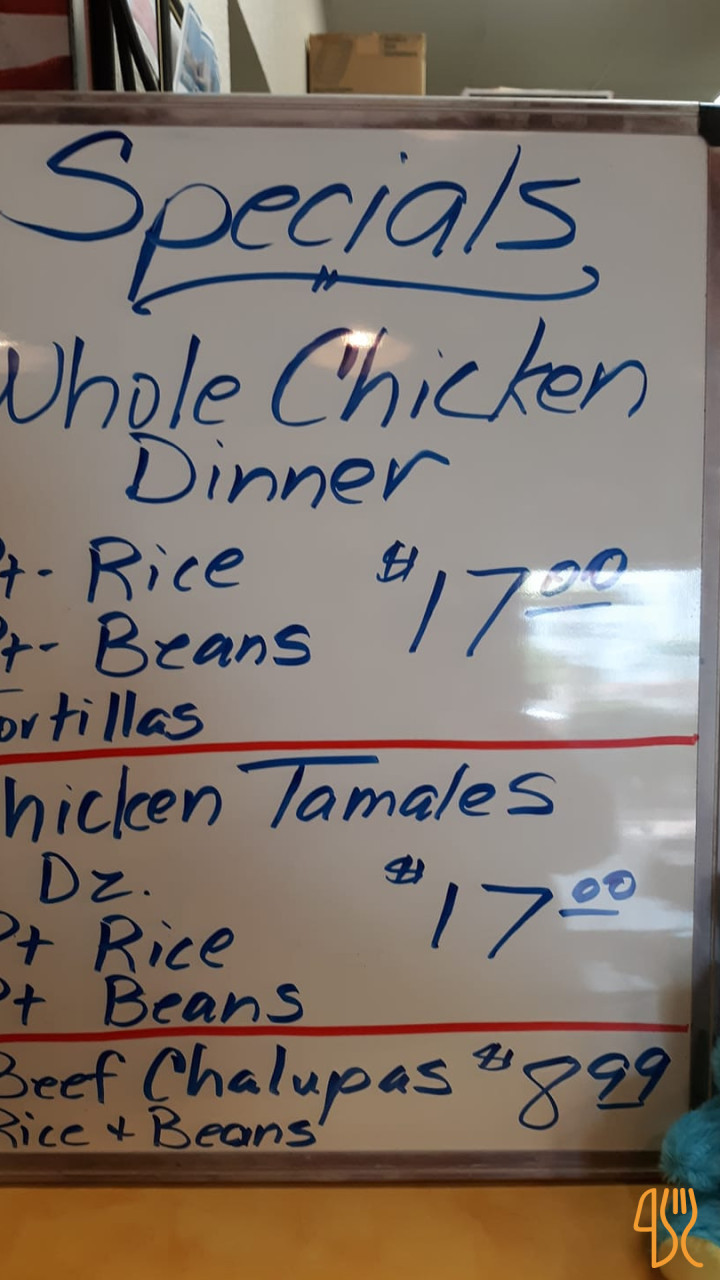 Specials
Whole Chicken
Dinner
Pt- Rice $17.00
Pt- Beans
Tortillas
Chicken Tamales
Dz. $17.00
Pt Rice
Pt Beans
Beef Chalupas $8.99
Rice + Beans